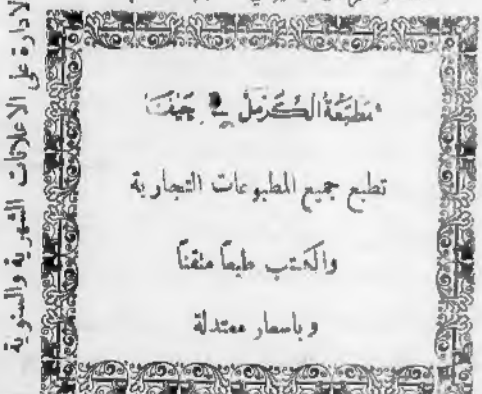 مطبعة الكرمل في حيفا
تطبع جميع المطبوعات التجارية
والكتب طبعاً متقناً
وباسعار معتدلة
الادارة على الاعلانات الشهرية والسنوية